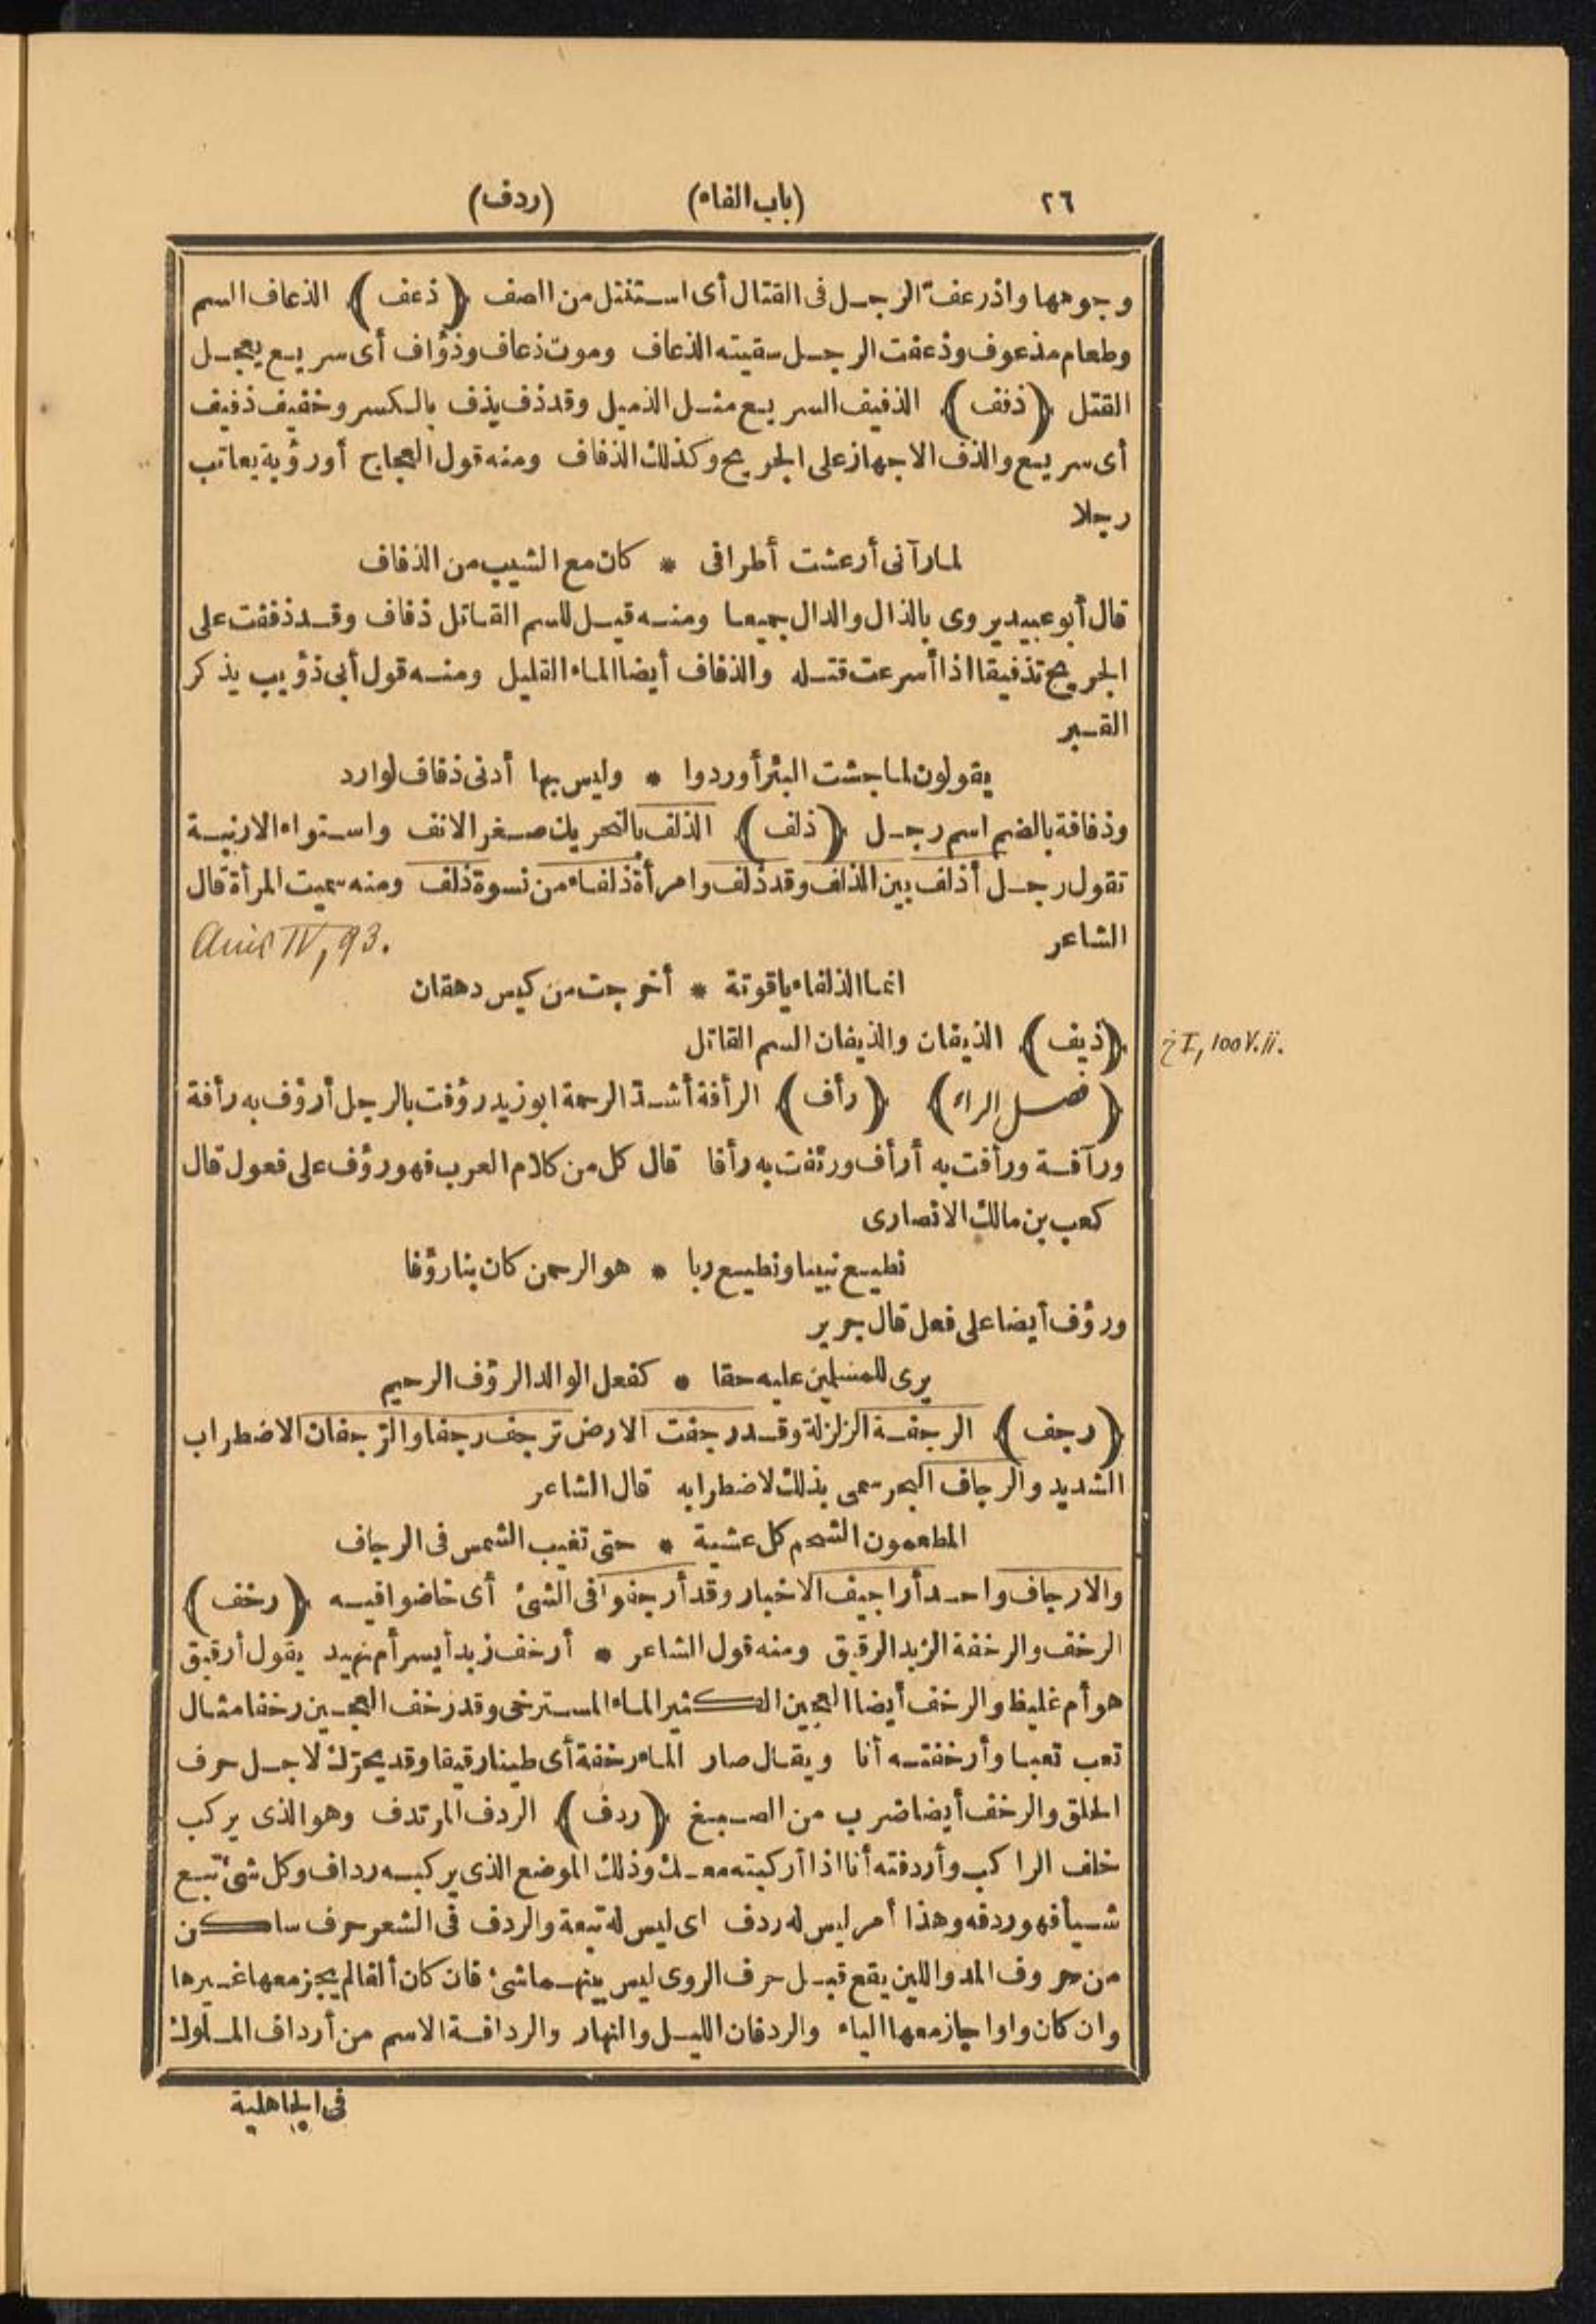 ٢٦ (باب الفاء) (ردف)
وجوهها واذرعفّ الرجل فى القتال أى استنتل من الصف ﴿ذعف﴾ الذعاف السم
وطعام مذعوف وذعفت الرجل سقيته الذعاف وموت ذعاف وذؤاف أى سريع يعجل
القتل ﴿ذفف﴾ الذفيف السريع مثل الذميل وقد ذف يذف بالكسر وخفيف ذفيف
أى سريع والذف الاجهاز على الجريح وكذلك الذفاف ومنه قول العجاج أو رؤبة يعاتب
رجلا
لما رآنى أرعشت أطرافى * كان مع الشيب من الذفاف
قال أبو عبيد يروى بالذال والدال جميعا ومنه قيل للسم القاتل ذفاف وقد ذففت على
الجريح تذفيفا اذا أسرعت قتله والذفاف أيضا الماء القليل ومنه قول أبى ذؤيب يذكر
القبر
يقولون لما جشت البئر أوردوا * وليس بها أدنى ذفاف لوارد
وذفافة بالضم اسم رجل ﴿ذلف﴾ الذلف بالتحريك صغر الانف واستواء الارنبة
تقول رجل أذلف بين الذلف وقد ذلف وامرأة ذلفاء من نسوة ذلف ومنه سميت المرأة قال
الشاعر
IV, 93.
انما الذلفاء ياقوتة * أخرجت من كيس دهقان
﴿ذيف﴾ الذيفان والذيفان السم القاتل
I, 100
﴿فصل الراء﴾ ﴿رأف﴾ الرأفة أشدّ الرحمة ابو زيد رؤفت بالرجل أرؤف به رأفة
ورآفة ورأفت به أرأف ورئفت به رأفا قال كل من كلام العرب فهو رؤف على فعول قال
كعب بن مالك الانصارى
نطيع نبينا ونطيع ربا * هو الرحمن كان بنا رؤفا
ورؤف أيضا على فعل قال جرير
يرى للمسلمين عليه حقا * كفعل الوالد الرؤف الرحيم
﴿رجف﴾ الرجفة الزلزلة وقد رجفت الارض ترجف رجفا والرّجفان الاضطراب
الشديد والرجاف البحر سمى بذلك لاضطرابه قال الشاعر
المطعمون الشحم كل عشية * حتى تغيب الشمس فى الرجاف
والارجاف واحد أراجيف الاخبار وقد أرجفوا فى الشئ أى خاضوا فيه ﴿رخف﴾
الرخف والرخفة الزبد الرقيق ومنه قول الشاعر * أرخف زبد أيسر أم نهيد يقول أرقيق
هو أم غليظ والرخف أيضا العجين الكثير الماء المسترخى وقد رخف العجين رخفا مثال
تعب تعبا وأرخفته أنا ويقال صار الماء رخفة أى طينا رقيقا وقد يحرّك لاجل حرف
الحلق والرخف أيضا ضرب من الصبغ ﴿ردف﴾ الردف المرتدف وهو الذى يركب
خلف الراكب وأردفته أنا اذا أركبته معك وذلك الموضع الذى يركبه رداف وكل شئ تبع
شيأ فهو ردفه وهذا أمر ليس له ردف اى ليس له تبعة والردف فى الشعر حرف ساكن
من حروف المد واللين يقع قبل حرف الروى ليس بينهما شئ فان كان ألفا لم يجز معها غيرها
وان كان واوا جاز معها الياء والردفان الليل والنهار والردافة الاسم من أرداف الملوك
فى الجاهلية